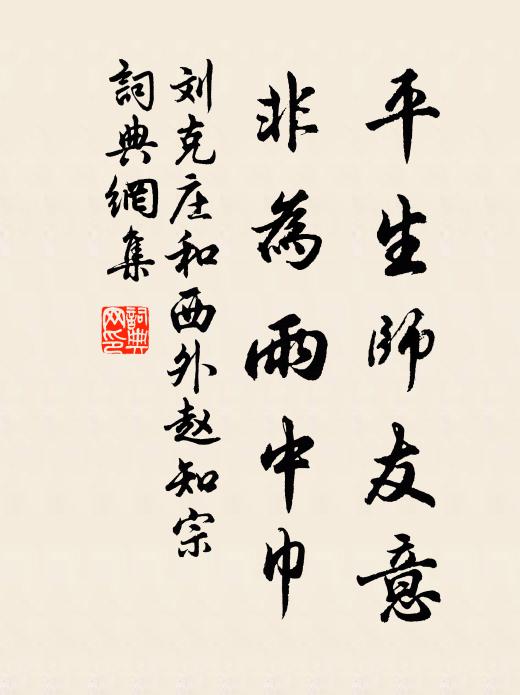 平生師友意
非為雨中巾
刘克庄和西外赵知宗
詞典網集
詞典網印